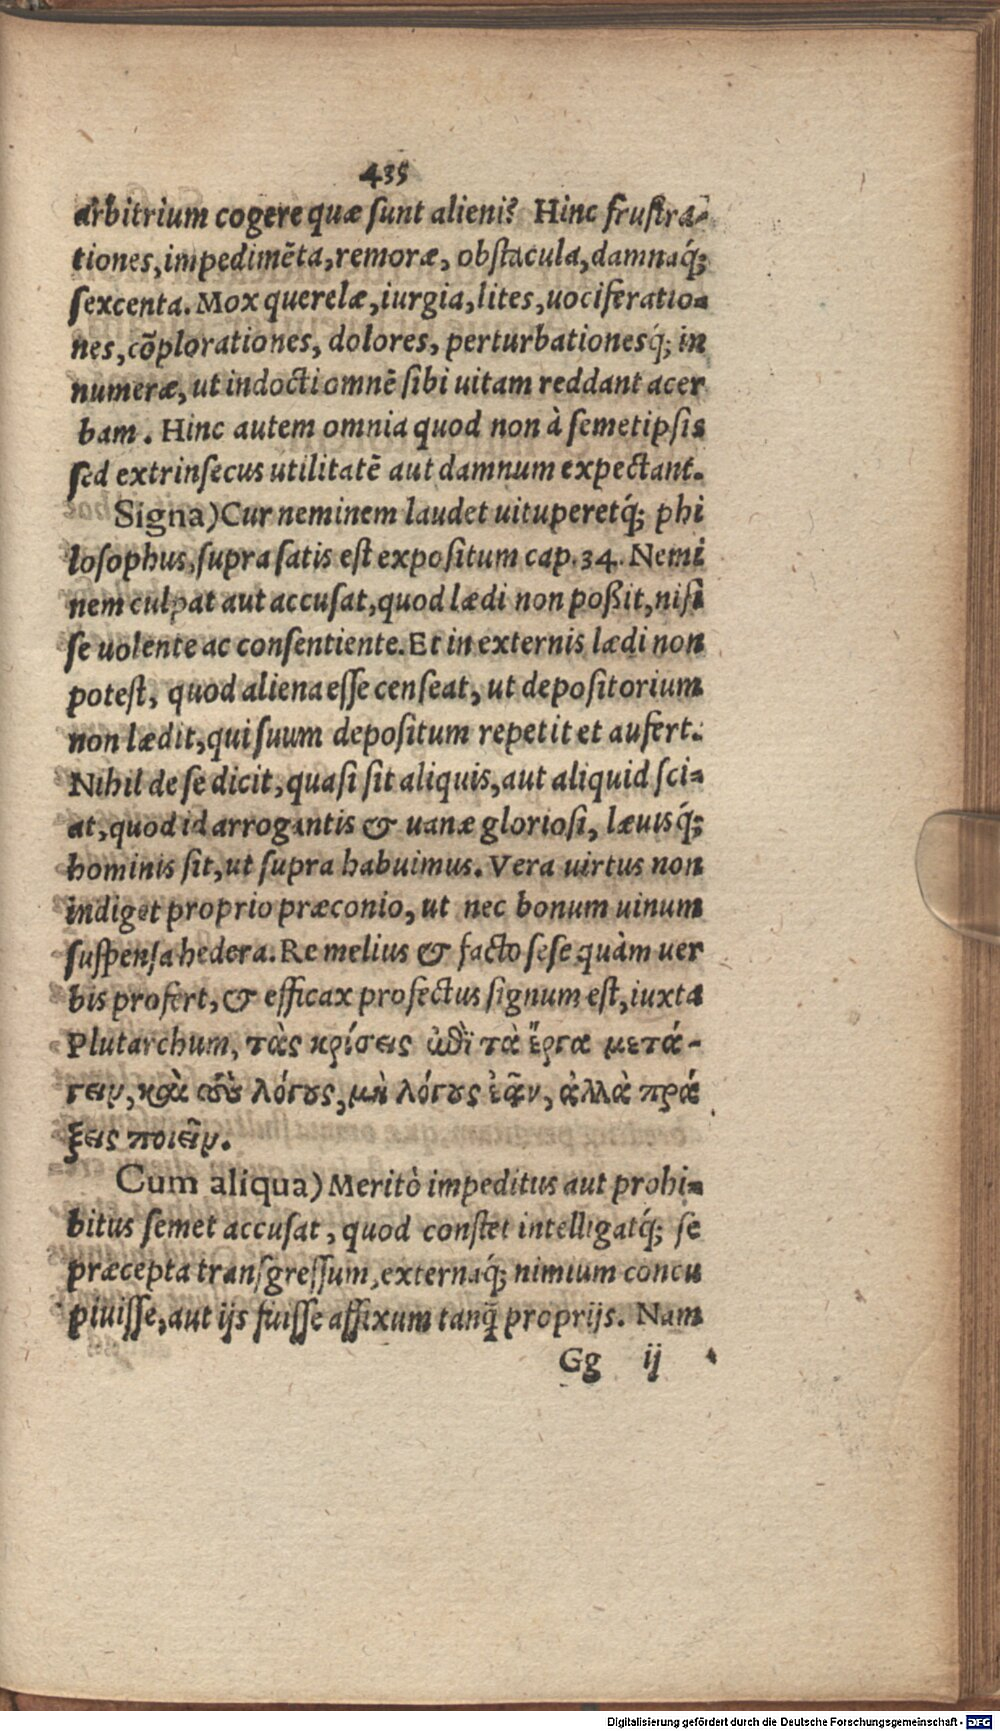 435
arbitrium cogere quæ sunt alieni? Hinc frustra-
tiones, impedimẽta, remoræ, obstacula, damnaq́;
sexcenta. Mox querelæ, iurgia, lites, uociferatio-
nes, cõplorationes, dolores, perturbationesq́; in
numeræ, ut indocti omnẽ sibi uitam reddant acer
bam. Hinc autem omnia quod non à semetipsis
sed extrinsecus utilitatẽ aut damnum expectant.
Signa) Cur neminem laudet uituperetq́; phi
losophus, supra satis est expositum cap. 34. Nemi
nem culpat aut accusat, quod lædi non poßit, nisi
se uolente ac consentiente. Et in externis lædi non
potest, quod aliena esse censeat, ut depositorium
non lædit, qui suum depositum repetit et aufert.
Nihil de se dicit, quasi sit aliquis, aut aliquid sci-
at, quod id arrogantis & uanæ gloriosi, læuisq́;
hominis sit, ut supra habuimus. Vera uirtus non
indiget proprio præconio, ut nec bonum uinum
suspensa hedera. Re melius & facto sese quàm uer
bis profert, & efficax profectus signum est, iuxta
Plutarchum, τὰς κρίσεις ἐπὶ τὰ ἔργα μετά-
γειν, καὶ τοὺς λόγους, μὴ λόγους ἐᾶν, ἀλλὰ πρά
ξεις ποιεῖν.
Cum aliqua) Meritò impeditus aut prohi-
bitus semet accusat, quod constet intelligatq́; se
præcepta transgressum, externaq́; nimium concu
piuisse, aut ijs fuisse affixum tanq̃ proprijs. Nam
Gg ij
Digitalisierung gefördert durch die Deutsche Forschungsgemeinschaft - DFG